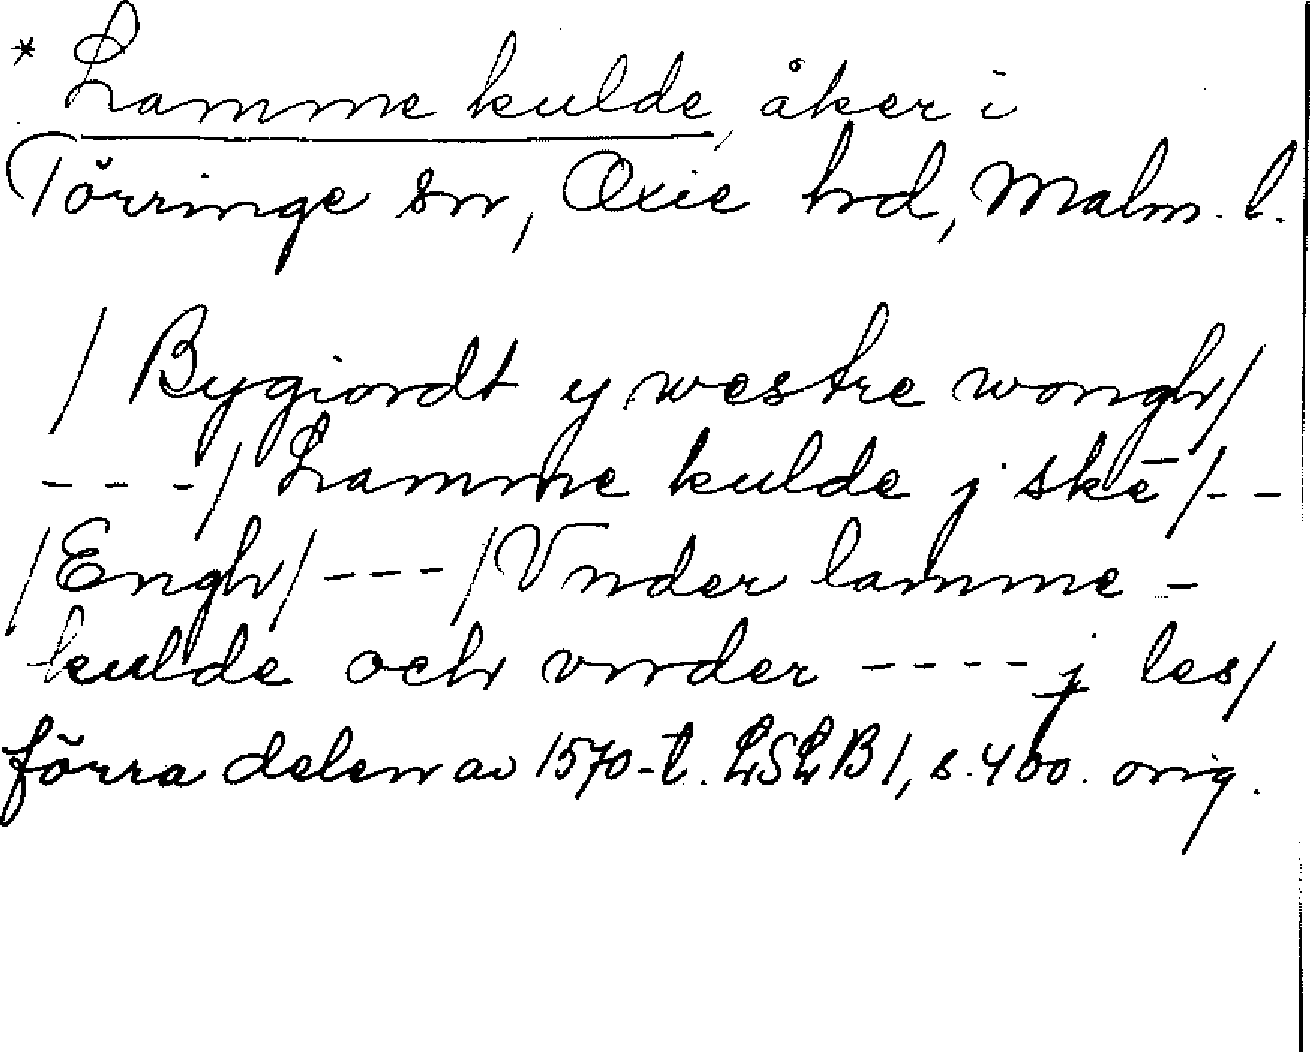 * Lamme kulde, åker i
Törringe sn, Oxie hd, Malm. l.
/ Bygiordt y westre wongh/
- - -/ Lamme kulde j skē /- -
/Engh/ - - - /Vnder lamme -
kulde och vnder - - - - j les/
förra delen av 1570-t. LSLB 1, s. 400. orig.